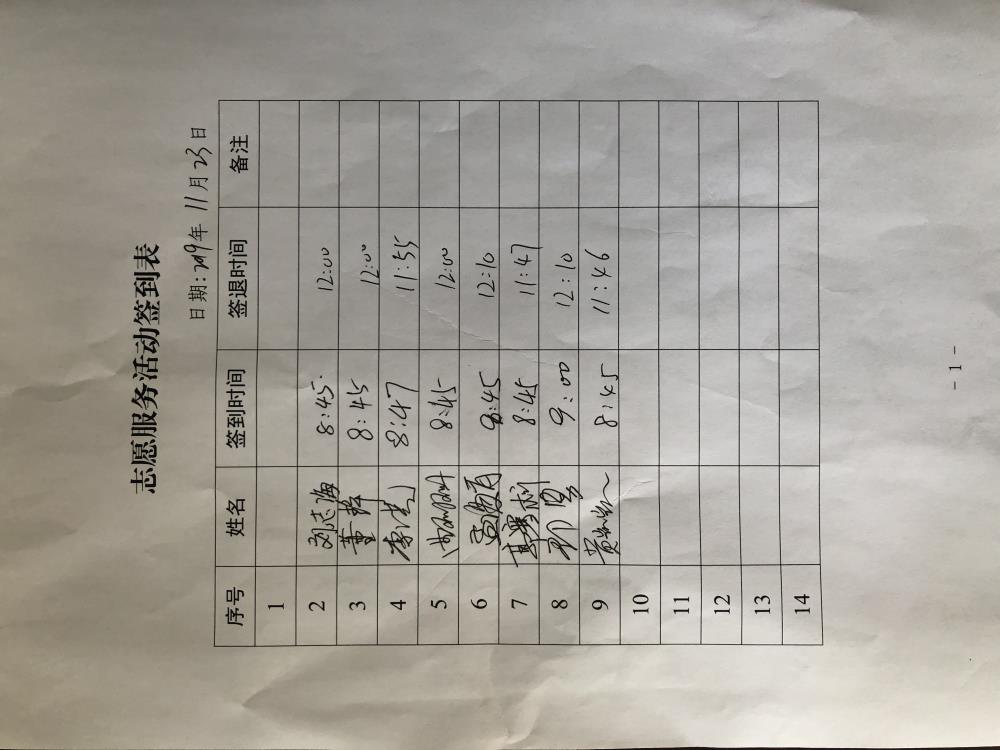 志愿服务活动签到表
日期:2019年 11月 23日
序号 姓名 签到时间 签退时间 备注
1
2 刘志海 8:45. 12:00
3 董辉 8:45 12:00
4 8:47 11:55
5 8:45 12:00
6 8:45 12:10
7 8:45 11:47
8 9:00 12:10
9 8:45 11:46
10
11
12
13
14
- 1 -